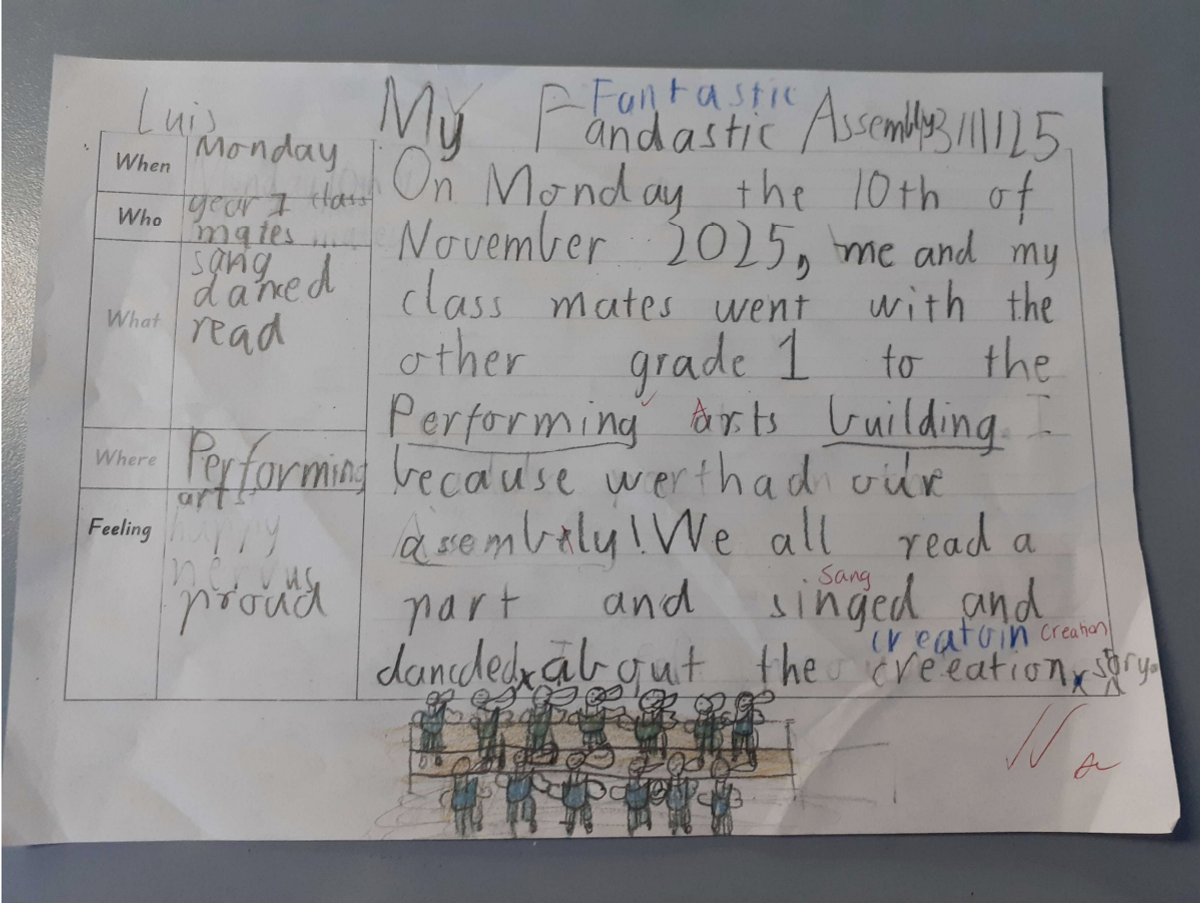 Luis
My Fandastic Assembly 3/11/125
Fantastic
When
Monday
Who
year 1 class
mates
What
sang
danced
read
Where
Performing
arts
Feeling
happy
nervus
proud
On Monday the 10th of
November 2025, me and my
class mates went with the
other grade 1 to the
Performing Arts building
because we had our
assembly! We all read a
part and singed and
sang
creatoin creation
dancded about the creeation story.